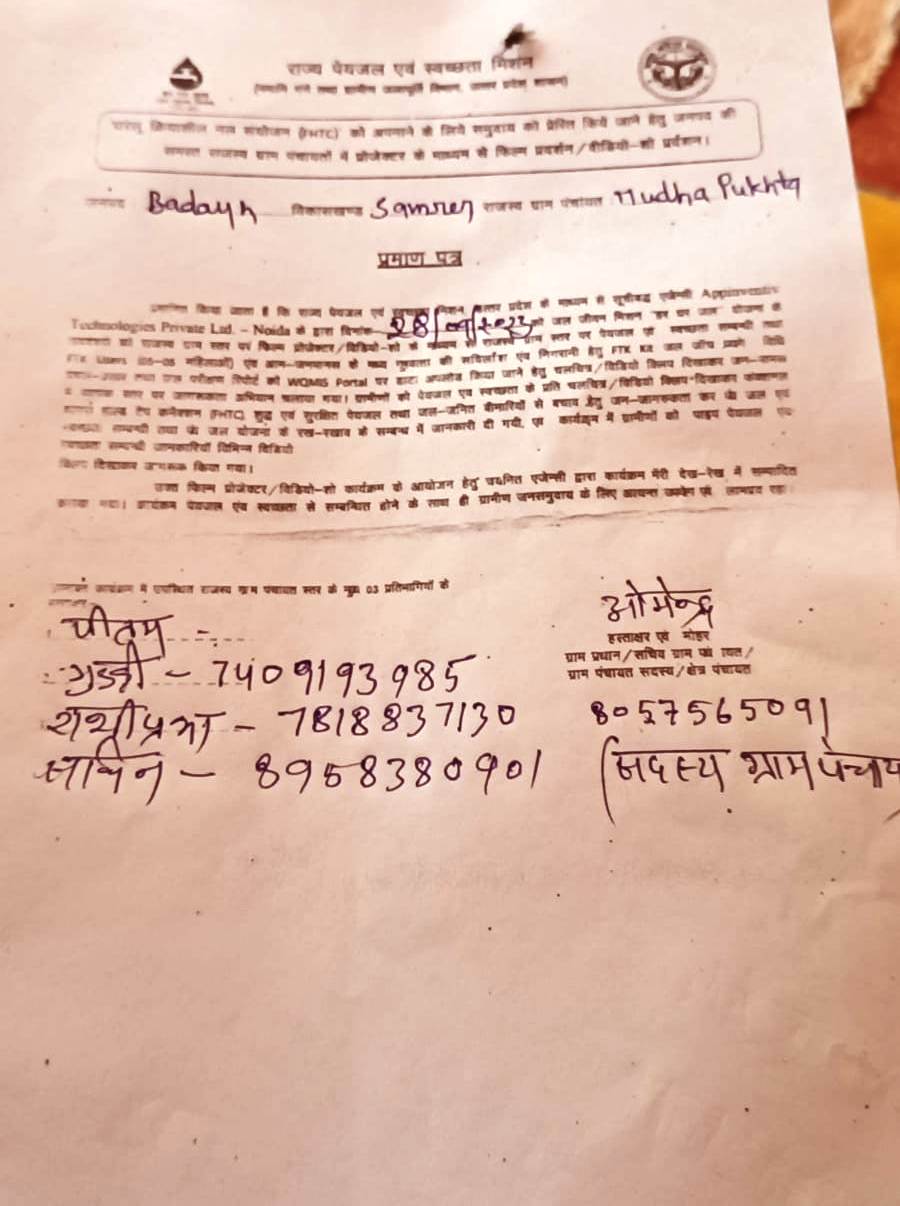 राज्य पेयजल एवं स्वच्छता मिशन
(नमामि गंगे तथा ग्रामीण जलापूर्ति विभाग, उत्तर प्रदेश शासन)
घरेलू क्रियाशील नल संयोजन (FHTC) को अपनाने के लिये समुदाय को प्रेरित किये जाने हेतु जनपद की
समस्त राजस्व ग्राम पंचायतों में प्रोजेक्टर के माध्यम से फिल्म प्रदर्शन/वीडियो-शो प्रर्दशन।
जनपद Badayun विकासखण्ड Samrer राजस्व ग्राम पंचायत Mudha Pukhta
प्रमाण पत्र
प्रमाणित किया जाता है कि राज्य पेयजल एवं स्वच्छता मिशन, उत्तर प्रदेश के माध्यम से सूचीबद्ध एजेन्सी Appinventiv
Technologies Private Ltd. – Noida के द्वारा दिनांक 28/09/2023 को जल जीवन मिशन "हर घर जल" योजना के
को राजस्व ग्राम स्तर पर फिल्म प्रोजेक्टर/विडियो-शो के माध्यम से राजस्व ग्राम स्तर पर पेयजल एवं स्वच्छता सम्बन्धी तथा
FTK Users (05-05 महिलाओं) एवं आम-जनमानस के मध्य गुणवत्ता की सर्विलांस एवं निगरानी हेतु FTK Kit जल जाँच विधि
तथा परीक्षण रिपोर्ट को WQMIS Portal पर डाटा अपलोड किया जाने हेतु चलचित्र/विडियो क्लिप दिखाकर जन-मानस
में व्यापक स्तर पर जागरूकता अभियान चलाया गया। ग्रामीणों को पेयजल एवं स्वच्छता के प्रति चलचित्र/विडियो क्लिप-दिखाकर
हाउस होल्ड टैप कनेक्शन (FHTC) शुद्ध एवं सुरक्षित पेयजल तथा जल-जनित बीमारियों से बचाव हेतु जन-जागरूकता कर जल एवं
स्वच्छता सम्बन्धी तथा जल योजना के रख-रखाव के सम्बन्ध में जानकारी दी गयी, एवं कार्यक्रम में ग्रामीणों को पाइप पेयजल एवं
स्वच्छता सम्बन्धी जानकारियाँ विभिन्न विडियो
क्लिप दिखाकर जागरूक किया गया।
उक्त फिल्म प्रोजेक्टर/विडियो-शो कार्यक्रम के आयोजन हेतु चयनित एजेन्सी द्वारा कार्यक्रम मेरी देख-रेख में सम्पादित
कराया गया। कार्यक्रम पेयजल एवं स्वच्छता से सम्बन्धित होने के साथ ही ग्रामीण जनसमुदाय के लिए अत्यन्त उपयोगी एवं लाभप्रद रहा।
कार्यक्रम में उपस्थित राजस्व ग्राम पंचायत स्तर के मुख्य 03 प्रतिभागियों के
पीतम
गुड्डी – 7409193985
शशीप्रभा – 7818837130
– 8958380901
ओमेन्द्र
हस्ताक्षर एवं मोहर
ग्राम प्रधान/सचिव ग्राम पंचायत/
ग्राम पंचायत सदस्य/क्षेत्र पंचायत
8057565091
सदस्य ग्राम पंचाय